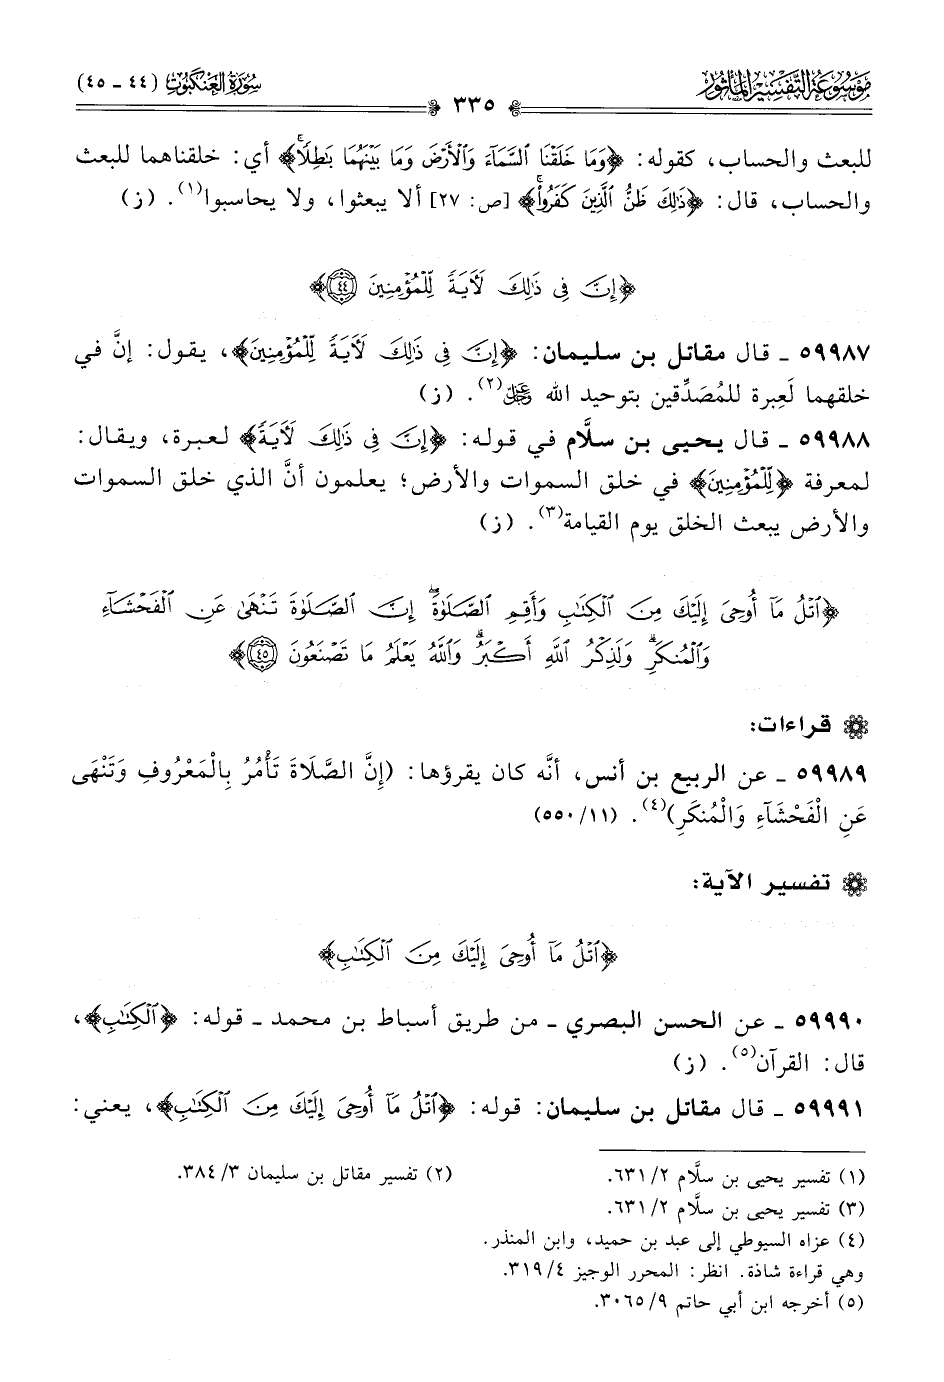 موسوعة التفسير المأثور
٣٣٥
سورة العنكبوت (٤٤ - ٤٥)
للبعث والحساب، كقوله: ﴿وَمَا خَلَقْنَا ٱلسَّمَآءَ وَٱلْأَرْضَ وَمَا بَيْنَهُمَا بَٰطِلًاۚ﴾ أي: خلقناهما للبعث
والحساب، قال: ﴿ذَٰلِكَ ظَنُّ ٱلَّذِينَ كَفَرُوا۟ۚ﴾ [ص: ٢٧] ألا يبعثوا، ولا يحاسبوا(١). (ز)
﴿إِنَّ فِى ذَٰلِكَ لَءَايَةً لِّلْمُؤْمِنِينَ ٤٤﴾
٥٩٩٨٧ - قال مقاتل بن سليمان: ﴿إِنَّ فِى ذَٰلِكَ لَءَايَةً لِّلْمُؤْمِنِينَ﴾، يقول: إنَّ في
خلقهما لَعِبرة للمُصَدِّقين بتوحيد الله عز وجل(٢). (ز)
٥٩٩٨٨ - قال يحيى بن سلَّام في قوله: ﴿إِنَّ فِى ذَٰلِكَ لَءَايَةً﴾ لعبرة، ويقال:
لمعرفة ﴿لِّلْمُؤْمِنِينَ﴾ في خلق السموات والأرض؛ يعلمون أنَّ الذي خلق السموات
والأرض يبعث الخلق يوم القيامة(٣). (ز)
﴿ٱتْلُ مَآ أُوحِىَ إِلَيْكَ مِنَ ٱلْكِتَٰبِ وَأَقِمِ ٱلصَّلَوٰةَۖ إِنَّ ٱلصَّلَوٰةَ تَنْهَىٰ عَنِ ٱلْفَحْشَآءِ
وَٱلْمُنكَرِۗ وَلَذِكْرُ ٱللَّهِ أَكْبَرُۗ وَٱللَّهُ يَعْلَمُ مَا تَصْنَعُونَ ٤٥﴾
قراءات:
٥٩٩٨٩ - عن الربيع بن أنس، أنَّه كان يقرؤها: (إِنَّ الصَّلَاةَ تَأْمُرُ بِالْمَعْرُوفِ وَتَنْهَى
عَنِ الْفَحْشَآءِ وَالْمُنكَرِ)(٤). (١١/ ٥٥٠)
تفسير الآية:
﴿ٱتْلُ مَآ أُوحِىَ إِلَيْكَ مِنَ ٱلْكِتَٰبِ﴾
٥٩٩٩٠ - عن الحسن البصري - من طريق أسباط بن محمد - قوله: ﴿ٱلْكِتَٰبِ﴾،
قال: القرآن(٥). (ز)
٥٩٩٩١ - قال مقاتل بن سليمان: قوله: ﴿ٱتْلُ مَآ أُوحِىَ إِلَيْكَ مِنَ ٱلْكِتَٰبِ﴾، يعني:
(١) تفسير يحيى بن سلَّام ٢/ ٦٣١.
(٢) تفسير مقاتل بن سليمان ٣/ ٣٨٤.
(٣) تفسير يحيى بن سلَّام ٢/ ٦٣١.
(٤) عزاه السيوطي إلى عبد بن حميد، وابن المنذر.
وهي قراءة شاذة. انظر: المحرر الوجيز ٤/ ٣١٩.
(٥) أخرجه ابن أبي حاتم ٩/ ٣٠٦٥.